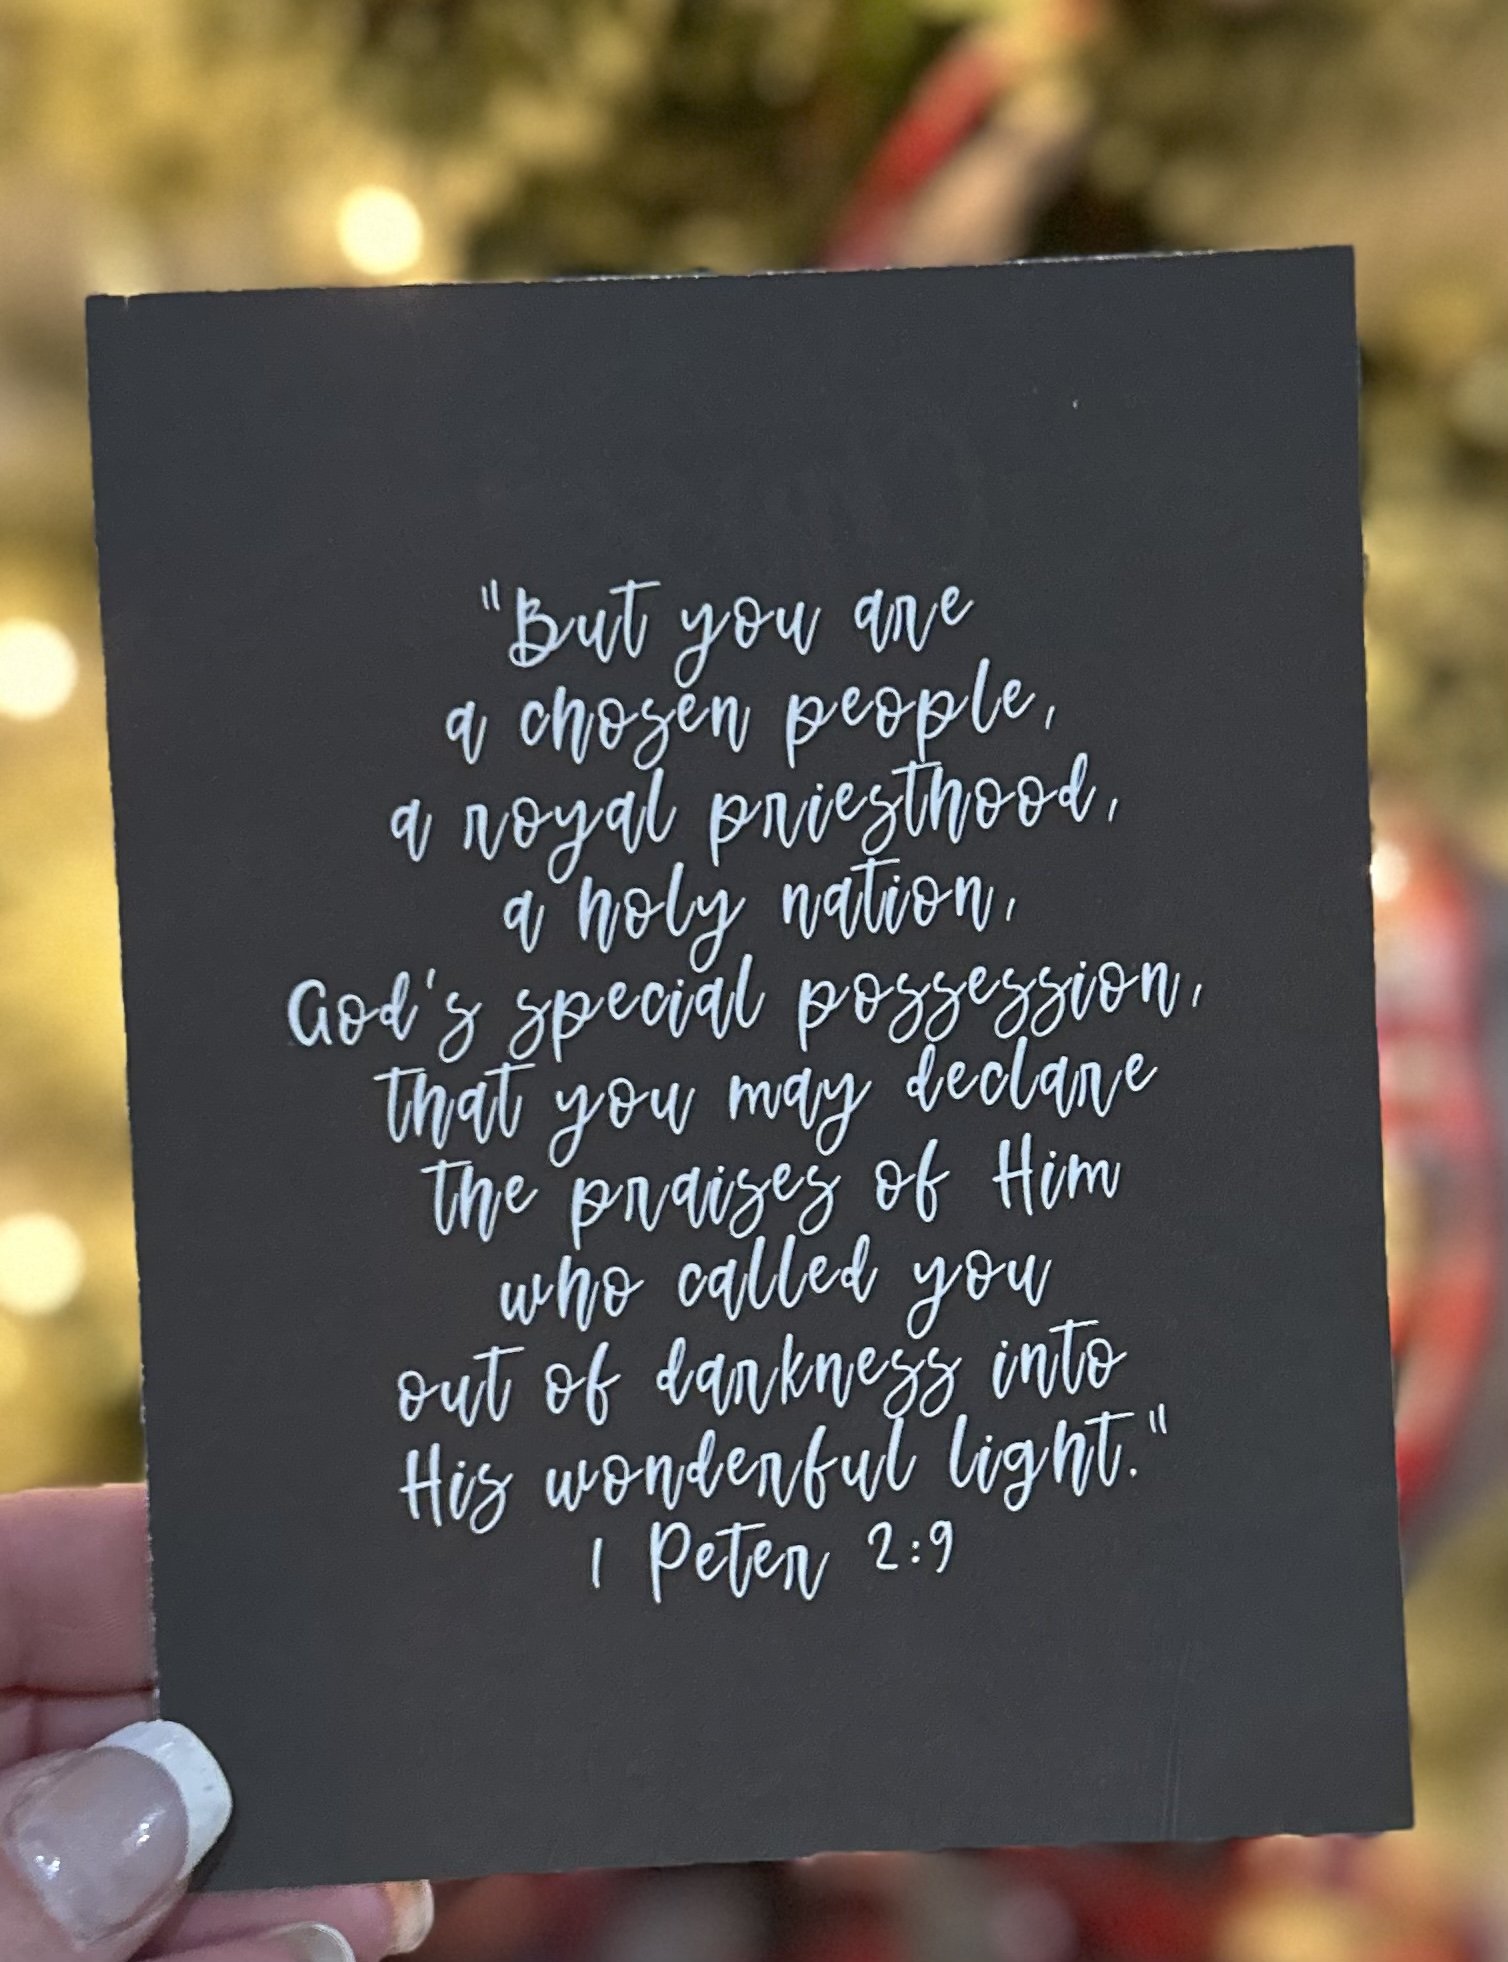 "But you are
a chosen people,
a royal priesthood,
a holy nation,
God's special possession,
that you may declare
the praises of Him
who called you
out of darkness into
His wonderful light."
1 Peter 2:9